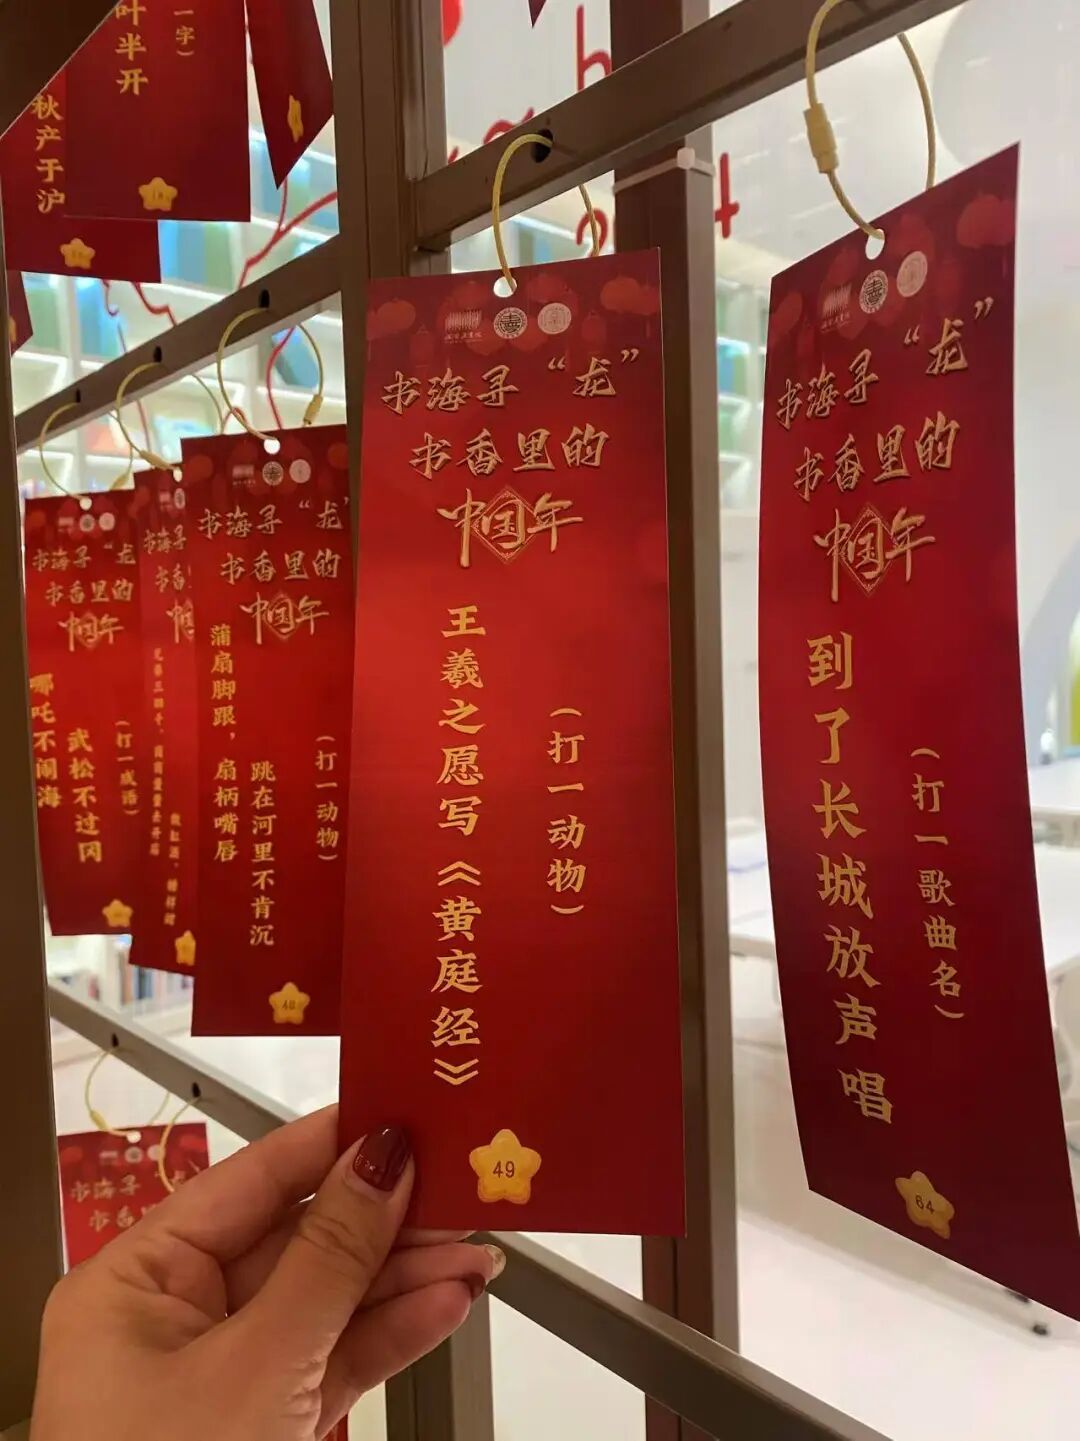 叶半开
一字）
秋产于沪
书海寻“龙”
书香里的
中国年
哪吒不闹海
武松不过冈
（打一成语）
书海寻
书香里的
中国
书海寻“龙”
书香里的
中国年
蒲扇脚跟，扇柄嘴唇
跳在河里不肯沉
（打一动物）
48
书海寻“龙”
书香里的
中国年
王羲之愿写《黄庭经》
（打一动物）
49
书海寻“龙”
书香里的
中国年
到了长城放声唱
（打一歌曲名）
64
书海寻
书香里